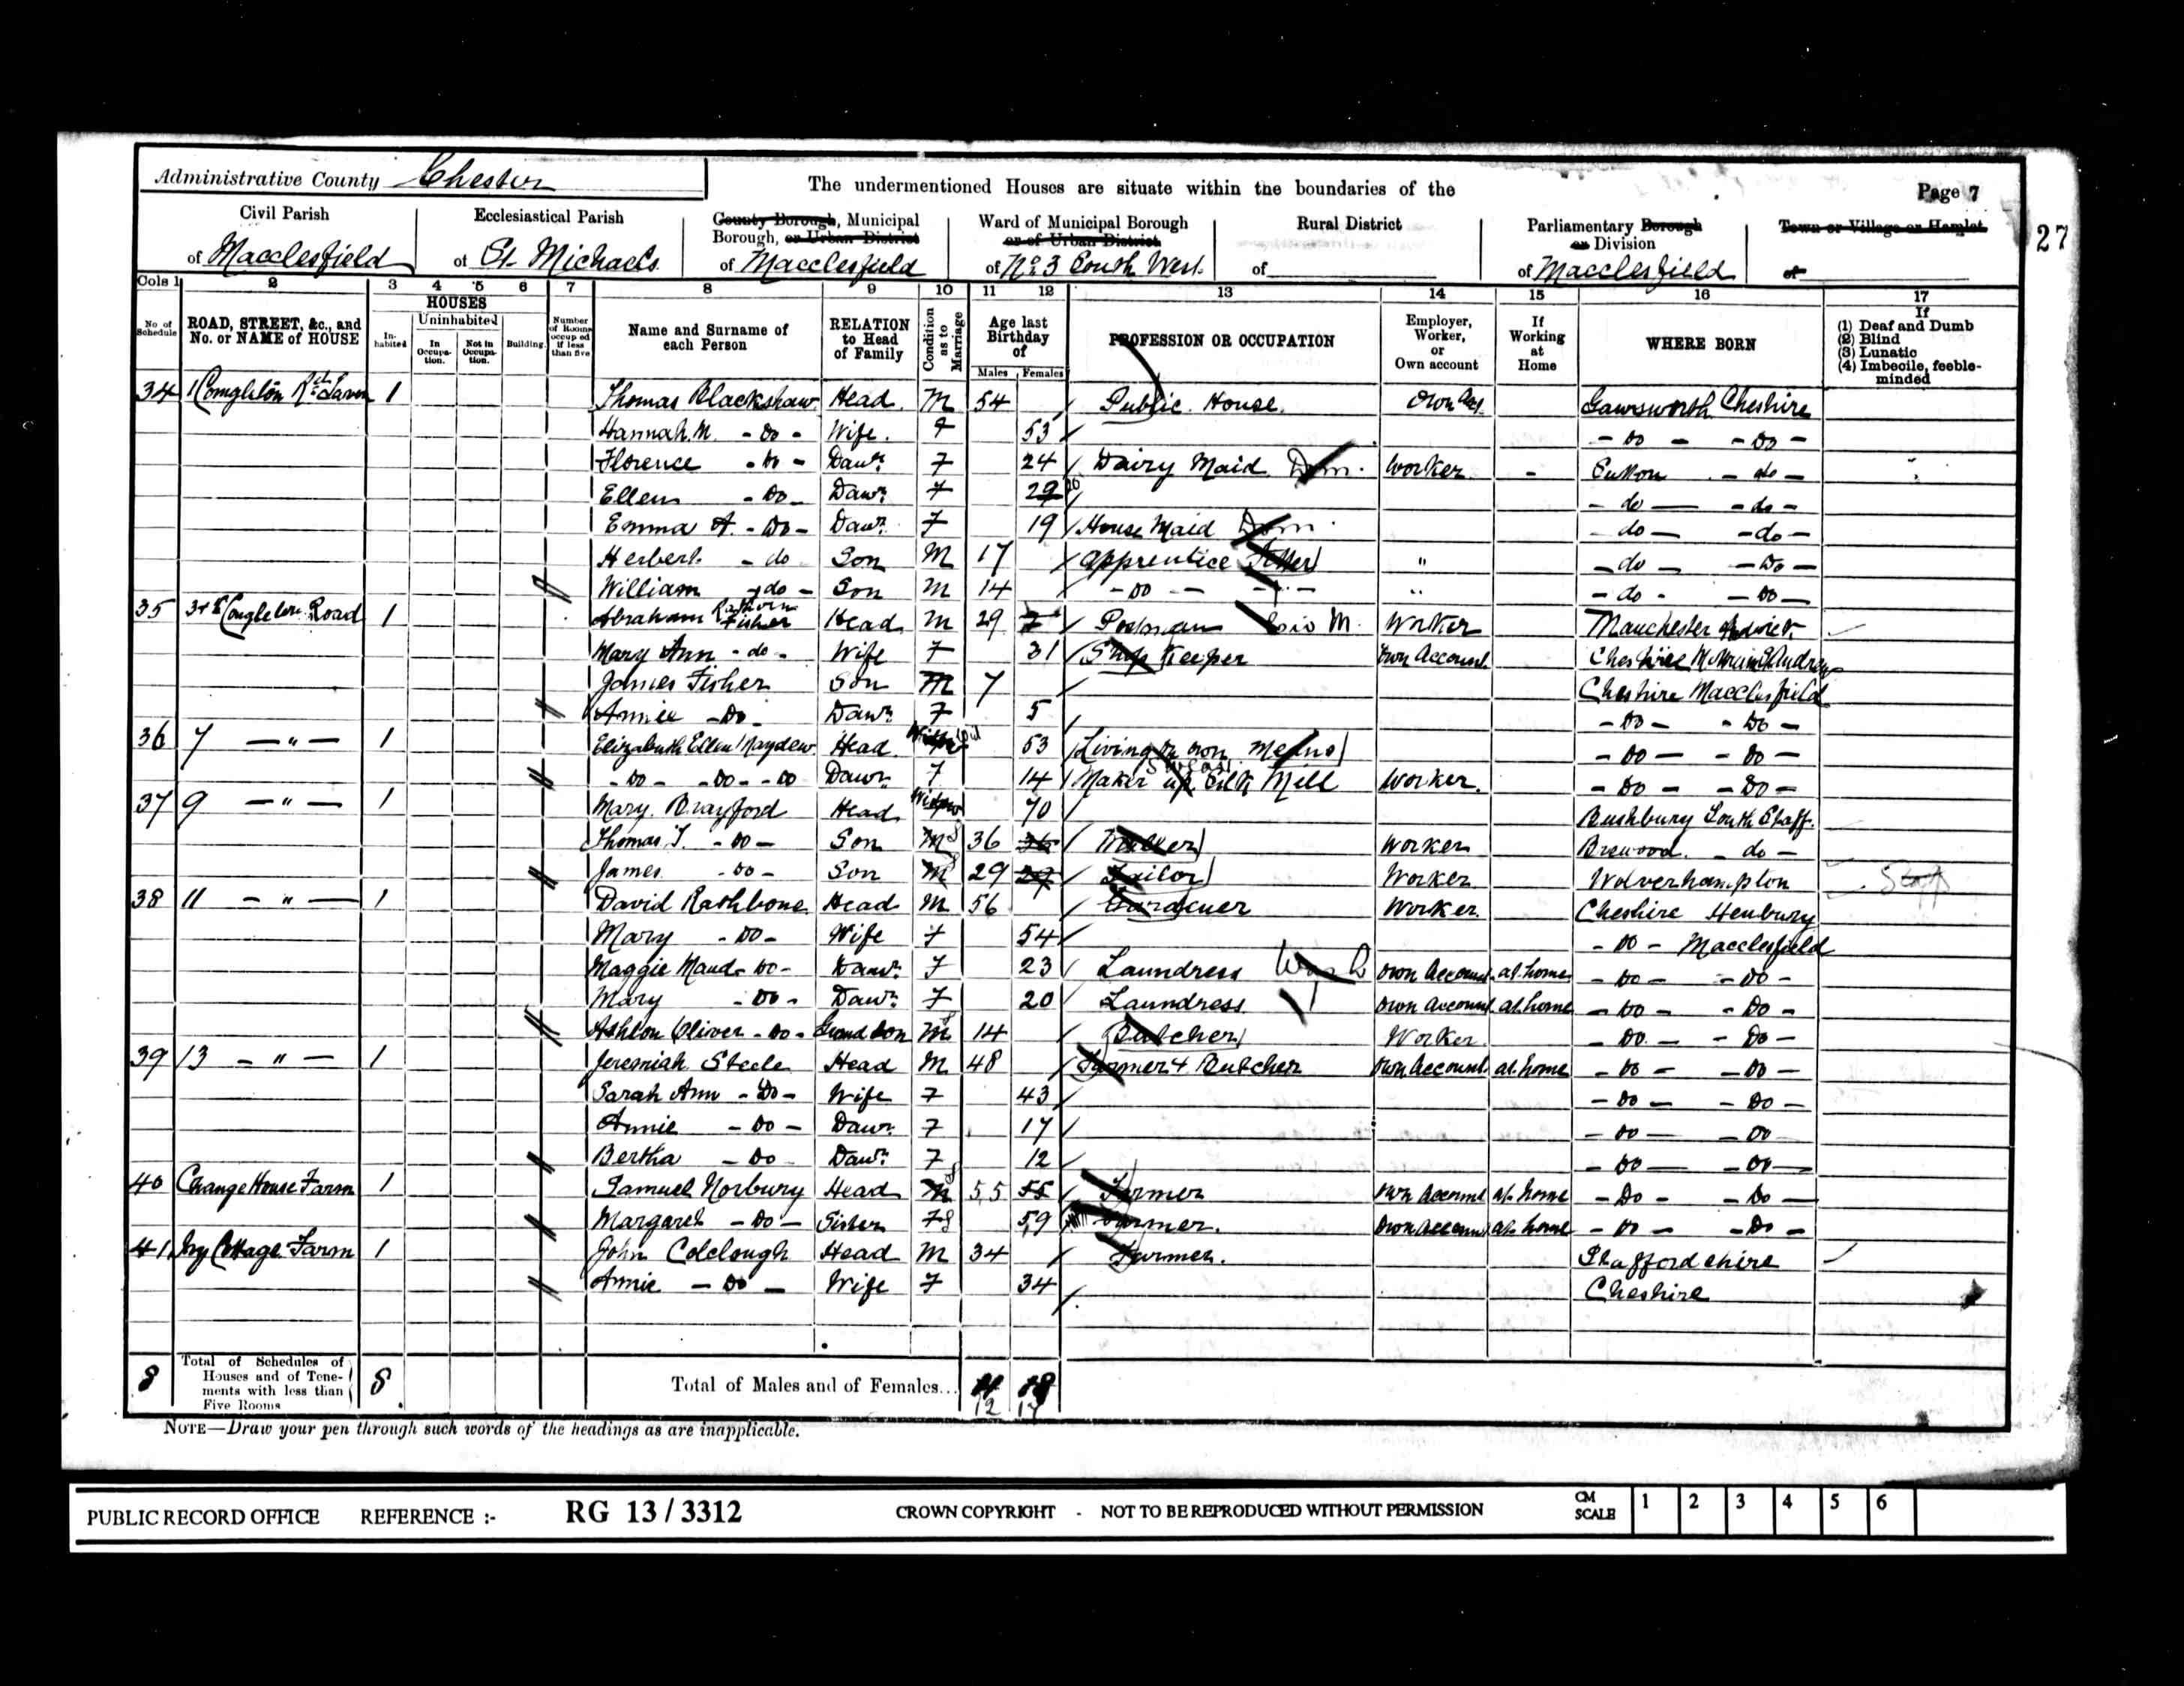 Administrative County Chester
The undermentioned Houses are situate within the boundaries of the
Page 7
27
Civil Parish of Macclesfield
Ecclesiastical Parish of St. Michaels
County Borough, Municipal Borough, or Urban District of Macclesfield
Ward of Municipal Borough or of Urban District of No 3 South West.
Rural District of
Parliamentary Borough or Division of Macclesfield
Town or Village or Hamlet of
Cols 1 2 3 4 5 6 7 8 9 10 11 12 13 14 15 16 17
No of Schedule
ROAD, STREET, &c., and No. or NAME of HOUSE
HOUSES
Inhabited
Uninhabited
In Occupation.
Not in Occupation.
Building.
Number of Rooms occupied if less than five
Name and Surname of each Person
RELATION to Head of Family
Condition as to Marriage
Age last Birthday of
Males Females
PROFESSION OR OCCUPATION
Employer, Worker, or Own account
If Working at Home
WHERE BORN
If
(1) Deaf and Dumb
(2) Blind
(3) Lunatic
(4) Imbecile, feeble-minded
34 1 Congleton Rd 1 Thomas Blackshaw Head M 54 Public House Own Acc Gawsworth Cheshire
Hannah M. - Do - Wife F 53 - Do - - Do -
Florence - Do - Dawr. F 24 Dairy Maid Dom. Worker - Sutton - do -
Ellen - Do - Dawr. F - do - - do -
Emma A. - Do - Dawr. F 19 House Maid Dom. - do - - do -
Herbert - do Son M 17 Apprentice " - do - - Do -
William - do - Son M 14 - Do - " - do - - Do -
35 Congleton Road 1 Abraham Fisher Head M 29 F Postman Worker Manchester
Mary Ann - do - Wife F 31 Shop Keeper Own Account Cheshire
James Fisher Son M 7 Cheshire Macclesfield
Annie - Do - Dawr. F 5 - Do - - Do -
36 7 - " - 1 Elizabeth Ellen Maydew Head Widow 53 Living on own Means - Do - - Do -
- Do - - Do - - Do Dawr. F 14 Maker up Silk Mill Worker. - Do - - Do -
37 9 - " - 1 Mary Brayford Head Widow 70 Bushbury South Staff.
Thomas J. - Do - Son M S 36 36 Worker Brewood - do -
James - Do - Son M S 29 29 Tailor Worker Wolverhampton Staffs
38 11 - " - 1 David Rathbone Head M 56 Gardener Worker Cheshire Henbury
Mary - Do - Wife F 54 - Do - Macclesfield
Maggie Maud - Do - Dawr. F 23 Laundress Wash Own Account at home - Do - - Do -
Mary - Do - Dawr. F 20 Laundress Own Account at home - Do - - Do -
Ashton Oliver - Do - Grand Son M S 14 Butcher Worker - Do - - Do -
39 13 - " - 1 Jeremiah Steele Head M 48 Farmer & Butcher Own Account at home - Do - - Do -
Sarah Ann - Do - Wife F 43 - Do - - Do -
Annie - Do - Dawr. F 17 - Do - - Do
Bertha - Do Dawr. F 12 - Do - - Do -
40 Change House Farm 1 Samuel Norbury Head M S 55 55 Farmer Own Account at home - Do - - Do -
Margaret - Do - Sister F S 59 Farmer. Own Account at home - Do - - Do -
41 Ivy Cottage Farm 1 John Colclough Head M 34 Farmer. Staffordshire
Annie - Do - Wife F 34 Cheshire
8 Total of Schedules of Houses and of Tenements with less than Five Rooms 8
Total of Males and of Females... 12 17
NOTE—Draw your pen through such words of the headings as are inapplicable.
PUBLIC RECORD OFFICE REFERENCE :- RG 13 / 3312 CROWN COPYRIGHT - NOT TO BE REPRODUCED WITHOUT PERMISSION CM SCALE 1 2 3 4 5 6